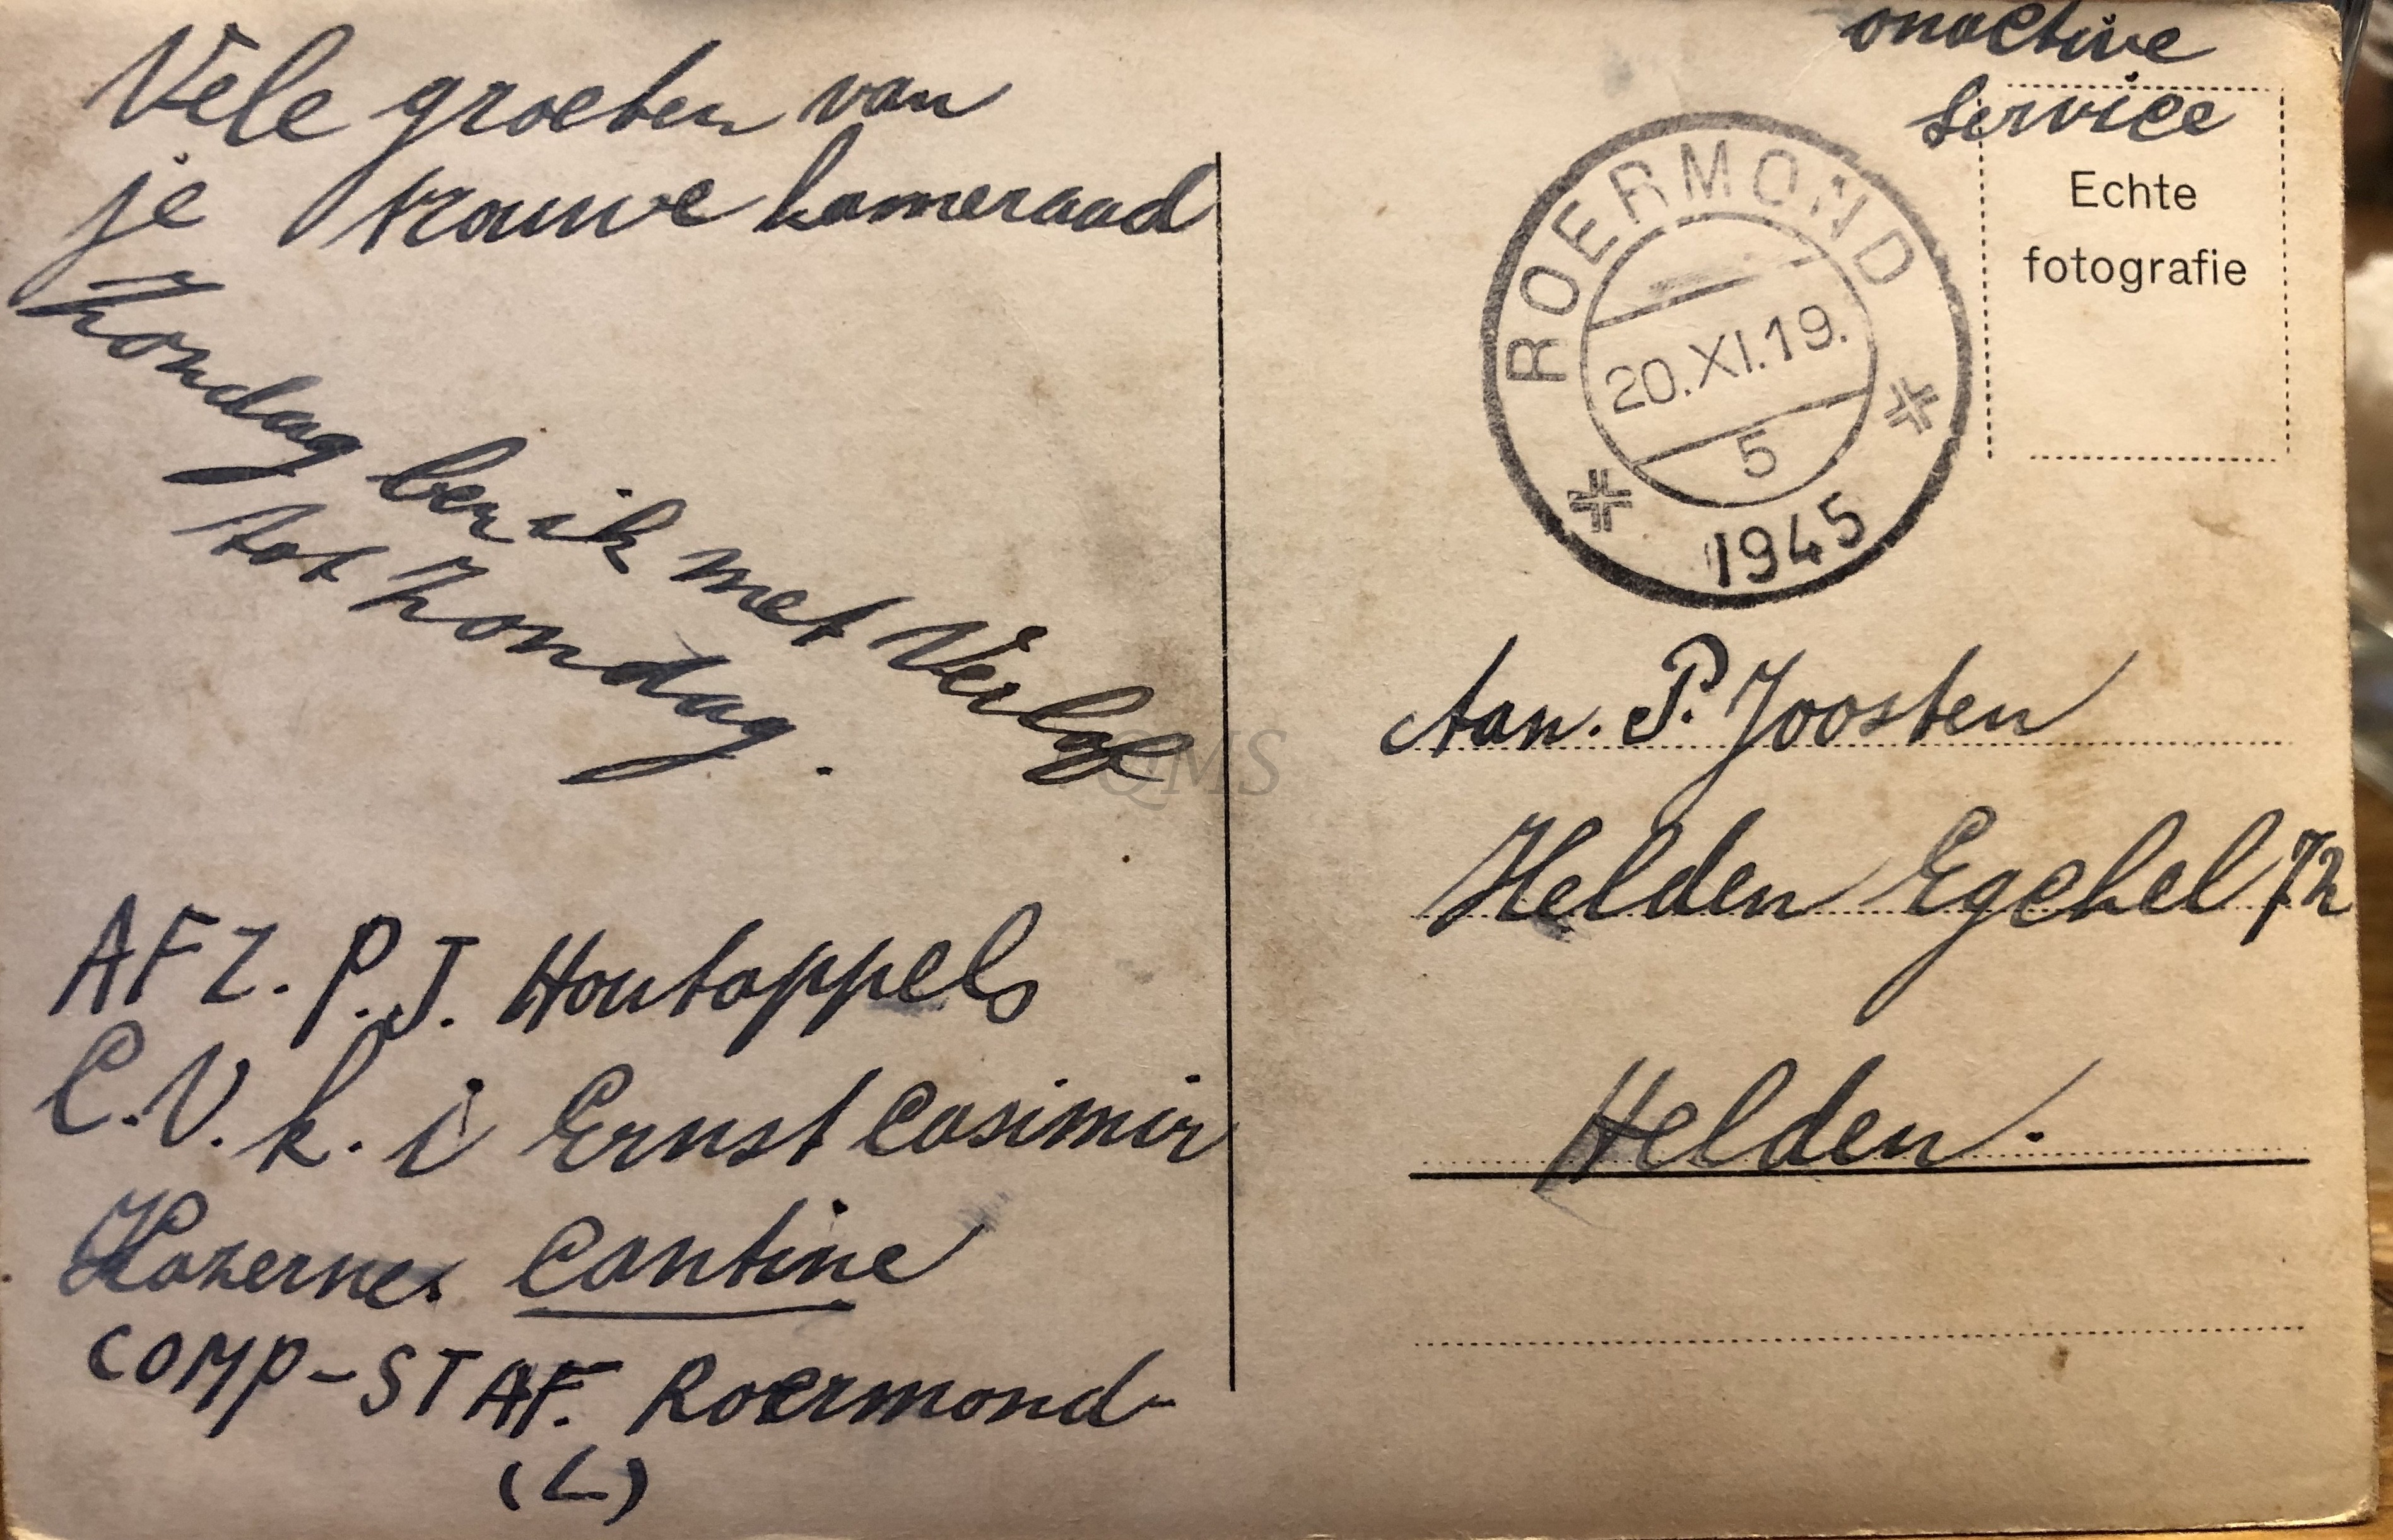 Vele groeten van
je trouwe kameraad
Zondag ben ik met Verlof
tot Zondag.
AFZ. P.J. Houtappels
C.V.k. i Ernst Casimir
Kazerne. Cantine
COMP-STAF. Roermond-
(L)
onactive
service
Echte
fotografie
ROERMOND
20.XI.19.
5
1945
Aan. P. Joosten
Helden Egchel 72
Helden.
QMS